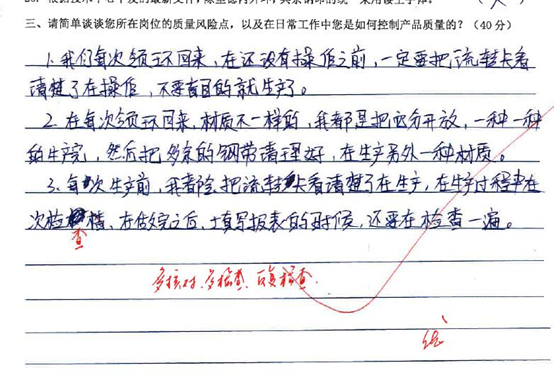 三、请简单谈谈您所在岗位的质量风险点，以及在日常工作中您是如何控制产品质量的？（40 分）
1. 我们每次领环回来，在还没有操作之前，一定要把流转卡看
清楚了在操作，不要盲目的就生产了。
2. 在每次领环回来，材质不一样的，我都是把它分开放，一种一种
的生产完，然后把多余的钢带清理好，在生产另外一种材质。
3. 每次生产前，我都会把流转卡看清楚了在生产，在生产过程中在
次检查，在做完之后，填写报表的时候，还要在检查一遍。
多核对，多检查，反复检查.